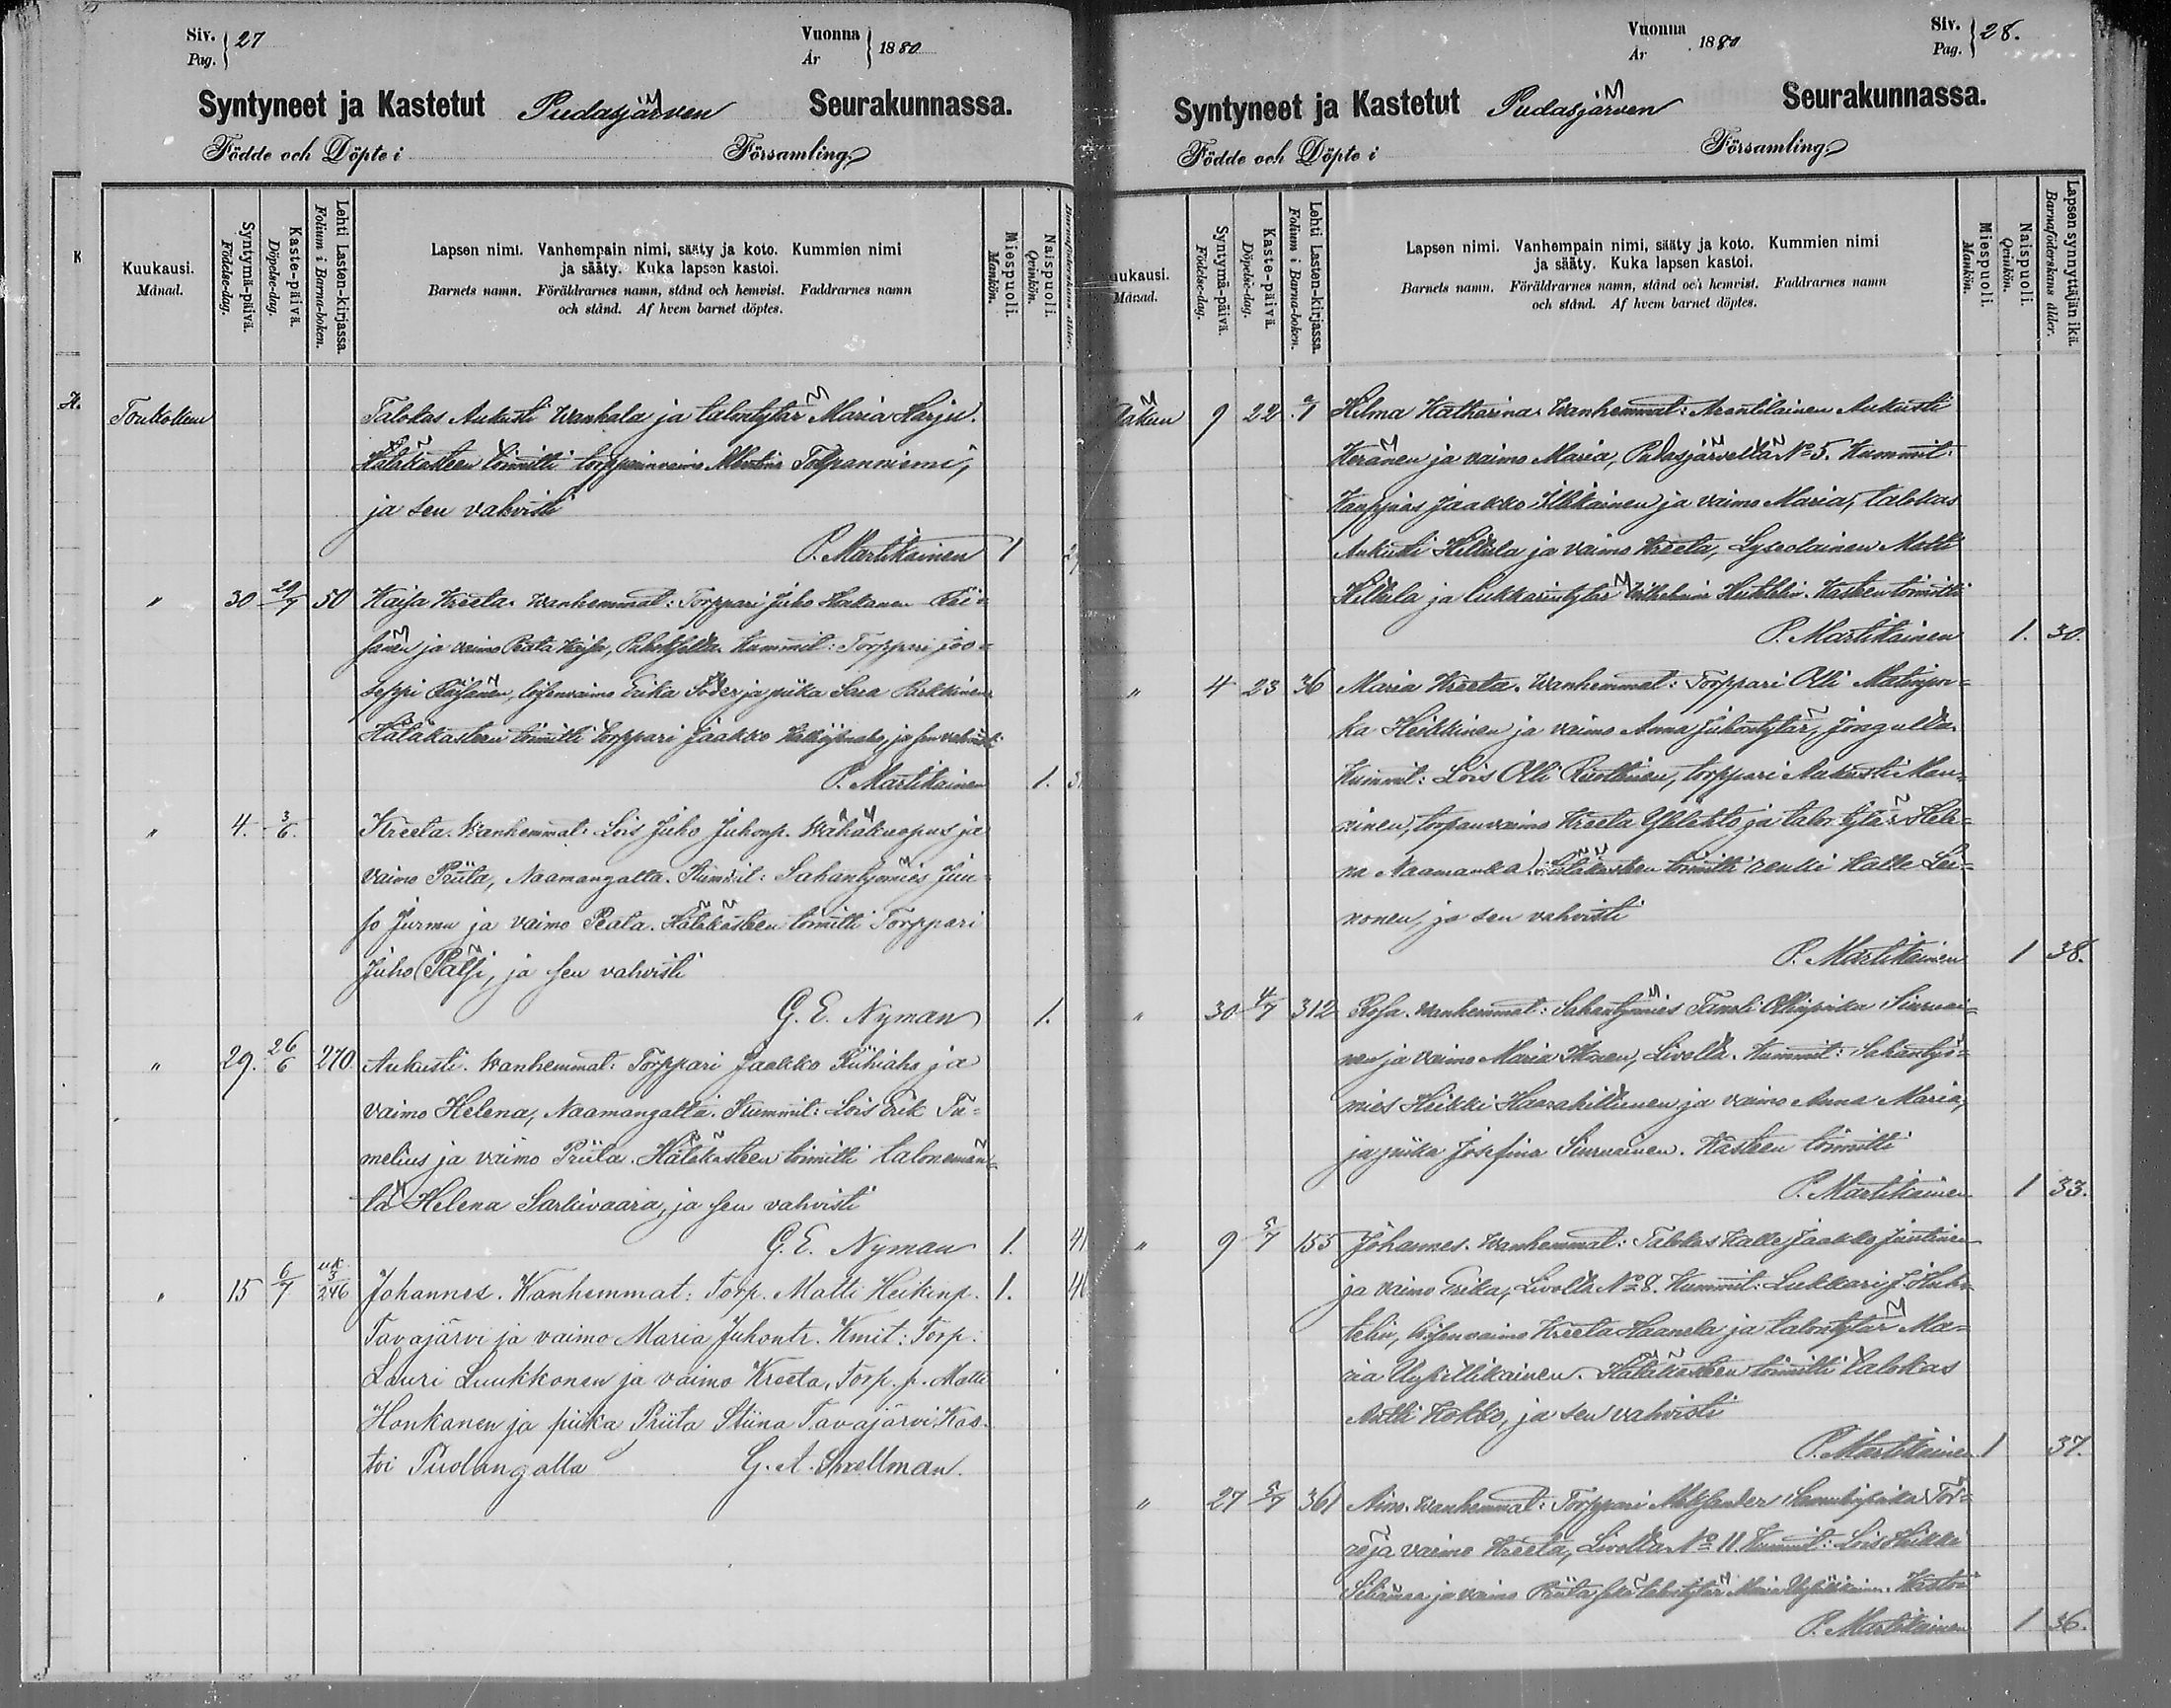 Siv. Pag. } 27
Vuonna År } 1880
Syntyneet ja Kastetut Pudasjärven Seurakunnassa.
Födde och Döpte i Församling.
Kuukausi. Månad.
Syntymä-päivä. Födelse-dag.
Kaste-päivä. Döpelse-dag.
Lehti Lasten-kirjassa. Folium i Barna-boken.
Lapsen nimi. Vanhempain nimi, sääty ja koto. Kummien nimi
ja sääty. Kuka lapsen kastoi.
Barnets namn. Föräldrarnes namn, stånd och hemvist. Faddrarnes namn
och stånd. Af hvem barnet döptes.
Miespuoli. Mankön.
Naispuoli. Qvinkön.
Barnaföderskans ålder.
Toukokuu Talokas Aukusti Wanhala ja talontytär Maria Harju.
Hätäkasteen toimitti torpparinvaimo Toppanniemi,
ja sen vahvisti
P. Martikainen 1
" 30 29/7 50 Kaisa Kreeta. Wanhemmat: Torppari Juho Räi-
sänen ja vaimo Kaisa, Kummit: Torppari Joo-
seppi Räisänen, loisenvaimo Erika Söder ja piika Sara Parkkinen
Hätäkasteen toimitti torppari Jaakko ja sen vahvisti
P. Martikainen 1. 3
" 4. 3/6. Kreeta. Wanhemmat: Lois Juho Juhonp. Wähäkuopus ja
vaimo Priita, Naamangalta. Kummit: Sahantyömies Juu-
so Jurmu ja vaimo Peata. Hätäkasteen toimitti Torppari
Juho Pätsi, ja sen vahvisti
G. E. Nyman 1.
" 29. 26/6 270. Aukusti. Wanhemmat: Torppari Jaakko Riihiaho ja
vaimo Helena, Naamangalta. Kummit: Lois Erik Ta-
melius ja vaimo Priita. Hätäkasteen toimitti talonemän-
tä Helena Sarkivaara, ja sen vahvisti
G. E. Nyman 1. 41
" 15 6/7 uk. 3/246 Johannes. Wanhemmat: Torp. Matti Heikinp. 1. 40
Tavajärvi ja vaimo Maria Juhontr. Kmit: Torp.
Lauri Luukkonen ja vaimo Kreeta, Torp. p. Matti
Honkanen ja piika Priita Stiina Tavajärvi. Kas-
toi Puolangalla G. A. Snellman.
Vuonna År 1880
Siv. Pag. } 28.
Syntyneet ja Kastetut Pudasjärven Seurakunnassa.
Födde och Döpte i Församling.
Kuukausi. Månad.
Syntymä-päivä. Födelse-dag.
Kaste-päivä. Döpelse-dag.
Lehti Lasten-kirjassa. Folium i Barna-boken.
Lapsen nimi. Vanhempain nimi, sääty ja koto. Kummien nimi
ja sääty. Kuka lapsen kastoi.
Barnets namn. Föräldrarnes namn, stånd och hemvist. Faddrarnes namn
och stånd. Af hvem barnet döptes.
Miespuoli. Mankön.
Naispuoli. Qvinkön.
Lapsen synnyttäjän ikä. Barnaföderskans ålder.
9 22 Hilma Katharina. Wanhemmat: Arentilainen Aukusti
Keränen ja vaimo Maria, Pudasjärveltä No 5. Kummit:
Kauppias Jaakko ja vaimo Maria, talokas
Aukusti Hiltula ja vaimo Kreeta, Lyseolainen Matti
Hiltula ja lukkarintytär Wilhelmina Huhtelin. Kasteen toimitti
P. Martikainen 1. 30.
" 4 23 36 Maria Kreeta. Wanhemmat: Torppari Olli Matinpoi-
ka Heikkinen ja vaimo Anna Juhontytär, Jongulta.
Kummit: Lois Olli torppari Aukusti Man-
ninen, torpanvaimo Kreeta Ylilehto ja talontytär Hele-
na Naamanka. Hätäkasteen toimitti renki Kalle Lei-
nonen, ja sen vahvisti
P. Martikainen 1 38.
" 30 4/7 312 Rosa. Wanhemmat: Sahantyömies Taneli Ollinpoika Sirvui-
nen ja vaimo Maria Livolta. Kummit: Sahantyö-
mies Heikki Haarahiltunen ja vaimo Anna Maria,
ja piika Josefina Kasteen toimitti
P. Martikainen 1 33.
" 9 5/7 155 Johannes. Wanhemmat: Talokas Kalle Jaakko Juntinen
ja vaimo Erika, Livolta No 8. Kummit: Lukkari J. Huh-
telin, loisenvaimo Kreeta Haanela ja talontytär Ma-
ria Uusiillikainen. Hätäkasteen toimitti talokas
Antti Kokko, ja sen vahvisti
P. Martikainen 1 37.
" 27 5/7 361 Aino. Wanhemmat: Torppari Aleksander Samulinpoika Tör-
rö ja vaimo Kreeta, Livolta No 11. Kummit: Lois Heikki
ja vaimo Priita sekä talontytär Maria Kastoi
P. Martikainen 1 36.